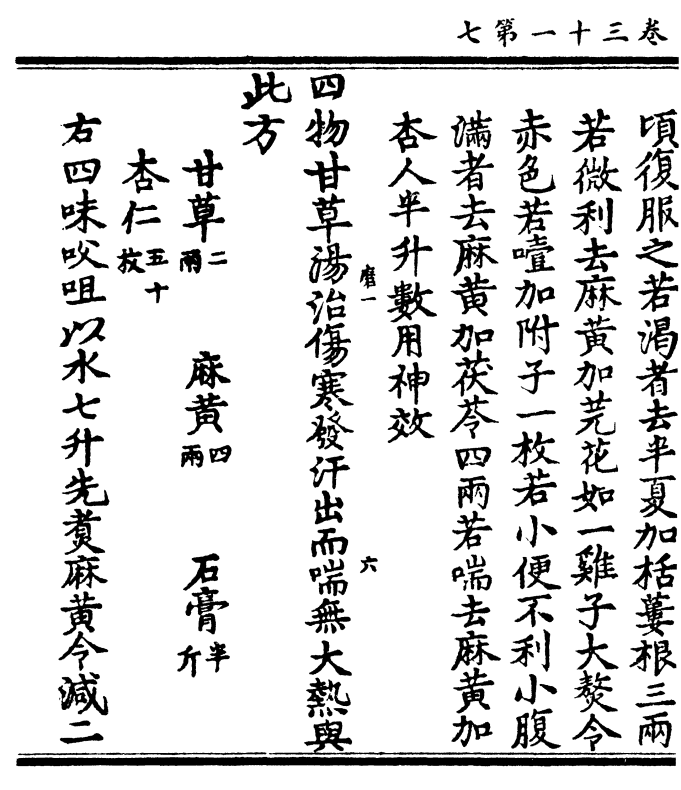 卷三十一第七
頃復服之若渴者去半夏加栝蔞根三兩
若微利去麻黃加芫花如一雞子大熬令
赤色若噎加附子一枚若小便不利小腹
滿者去麻黃加茯苓四兩若喘去麻黃加
杏人半升數用神效
四物甘草湯治傷寒發汗出而喘無大熱與
磨一
六
此方
甘草二兩 麻黃四兩 石膏半斤
杏仁五十枚
右四味㕮咀以水七升先煑麻黃令減二